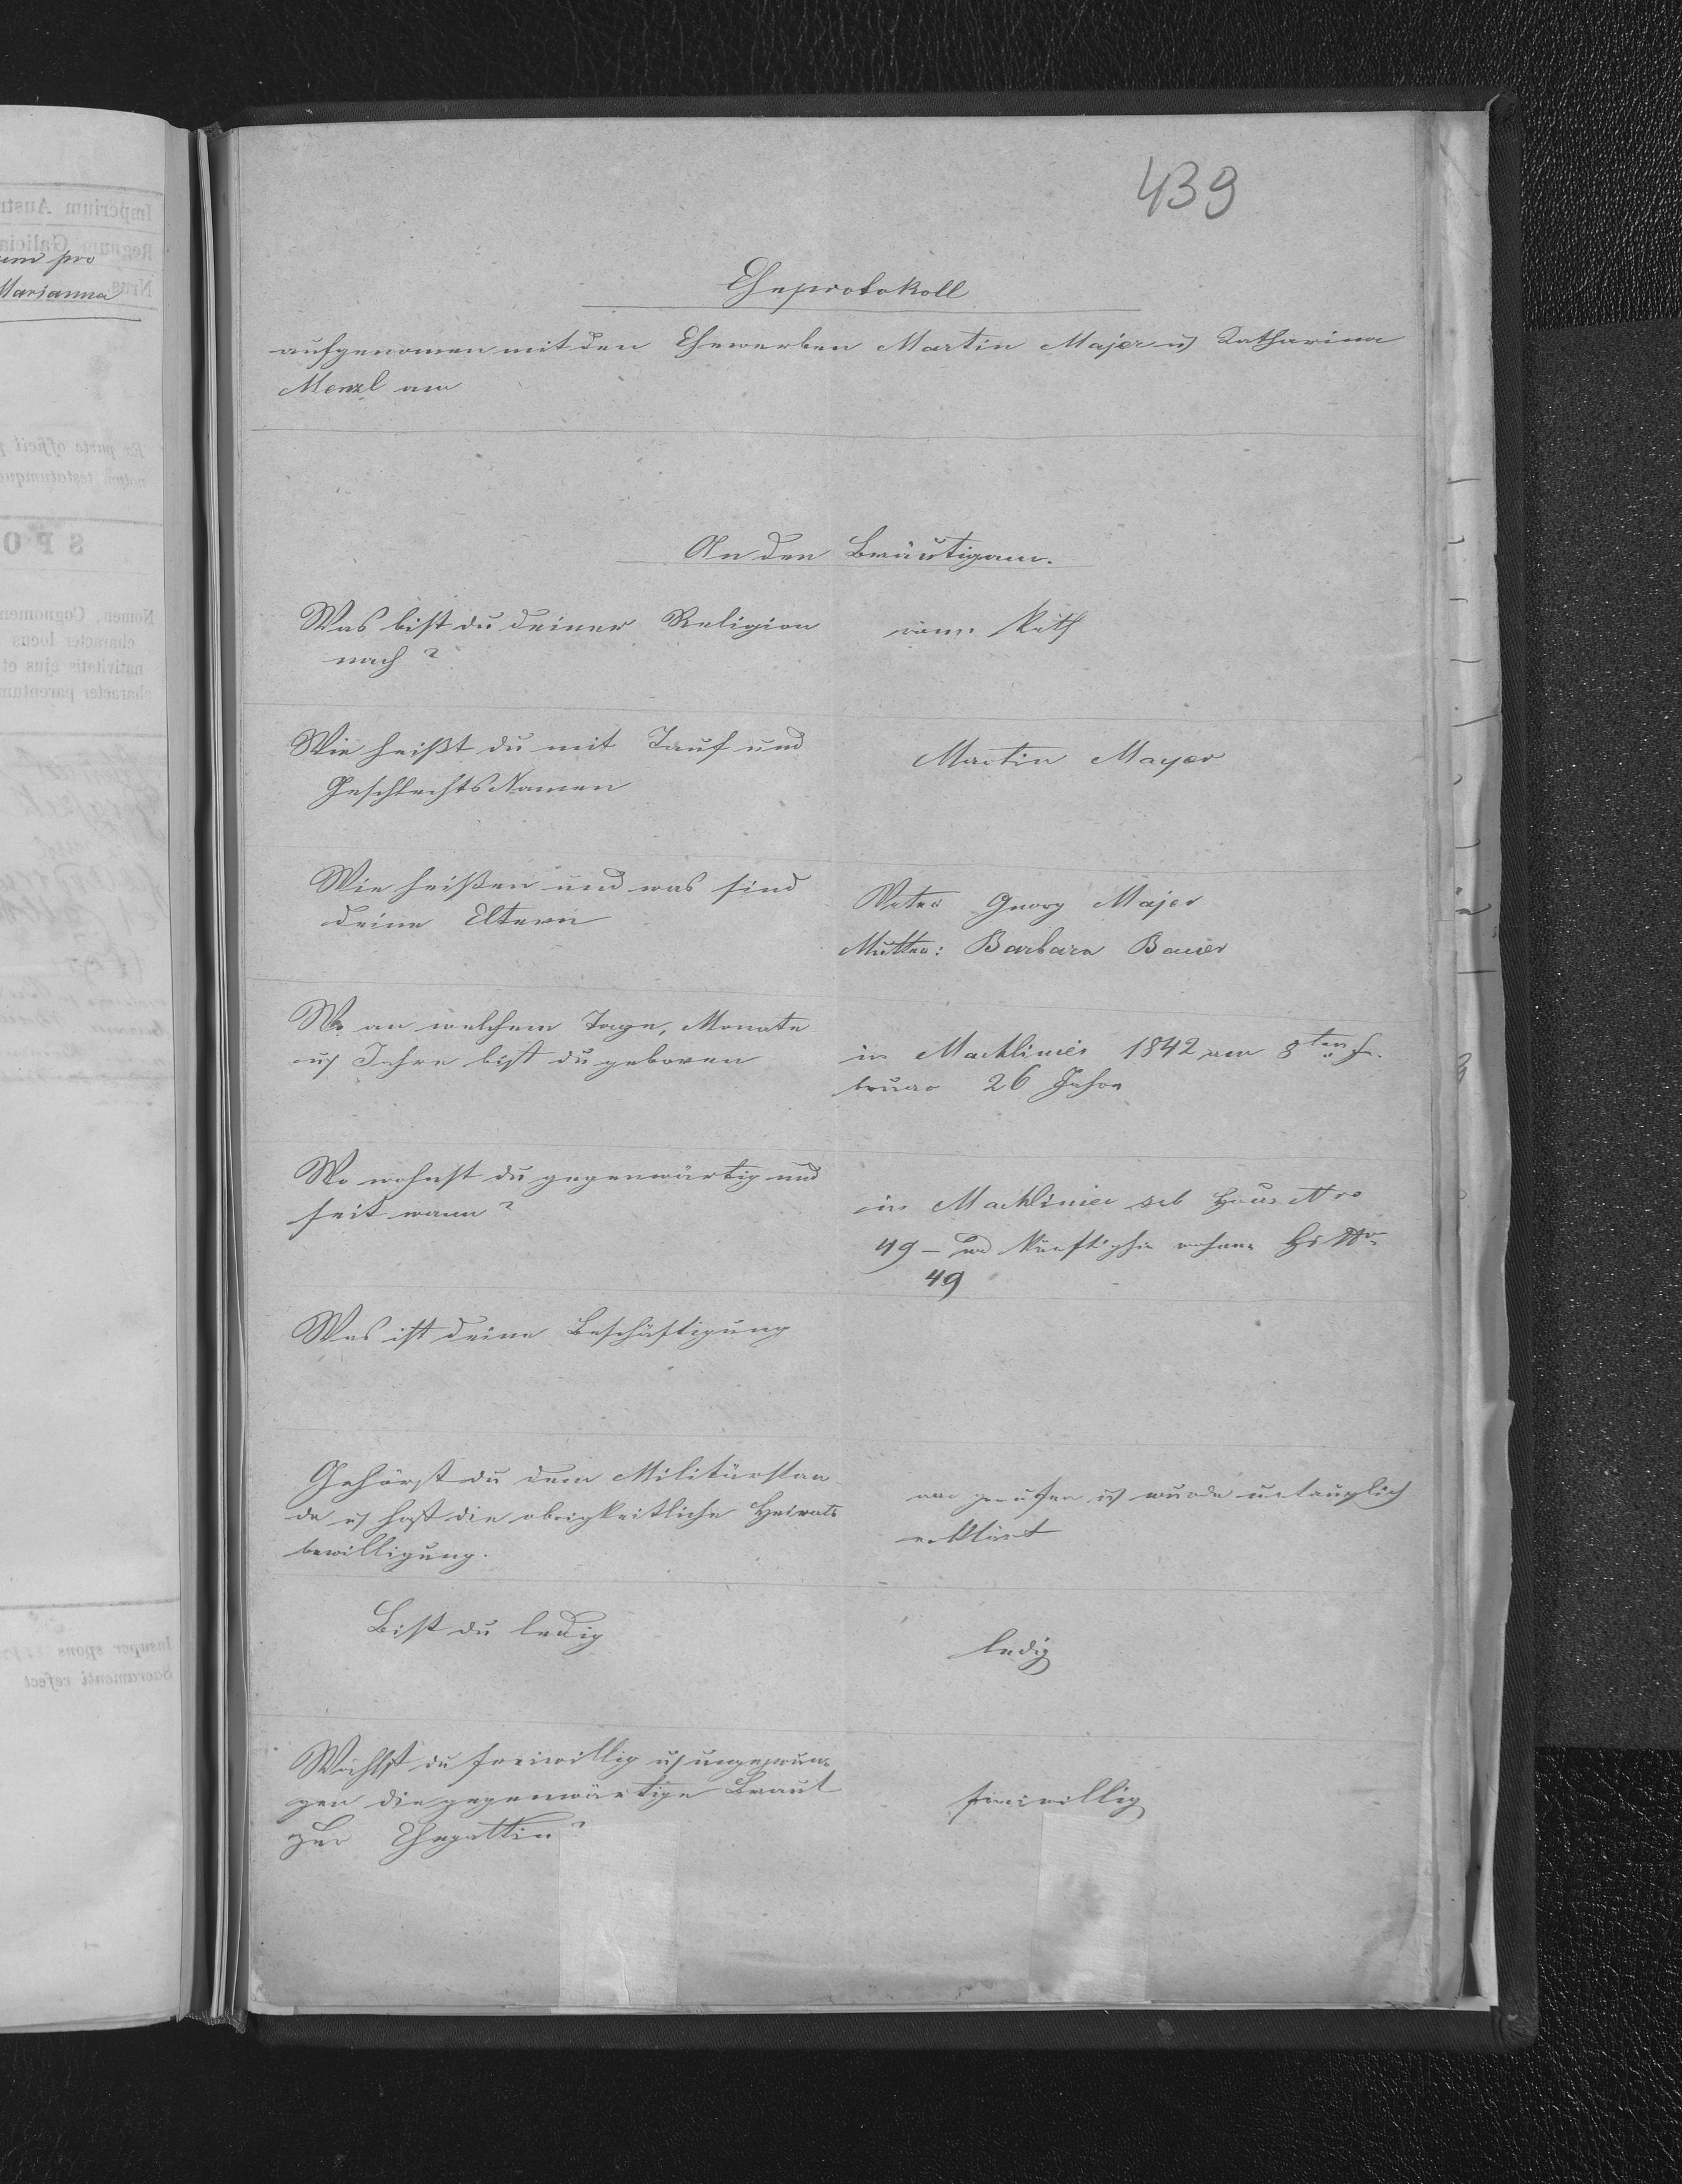 439
Eheprotokoll
aufgenomen mit den Ehewerben Martin Majer u Katharina
Menzl am
An den Bräutigam.
Was bist du deiner Religion
nach?
röm. Kath
Wie heißt du mit Tauf und
Geschlechts Namen
Martin Mayer
Wie heißen und was sind
deine Eltern
Vater Georg Majer
Mutter: Barbara Bauer
Wo an welchem Tage, Monate
u Jahre bist du geboren
in Machliniec 1842 am 8ten Fe-
bruar 26 Jahre
Wo wohnst du gegenwärtig und
seit wann?
in Machliniec sub Haus Nro
49 – und künftighin wohnen Hs Nro
49
Was ist deine Beschäftigung
Gehörst du dem Militärstan-
de u hast die obrigkeitliche Heirats
bewilligung.
war gerufen u wurde untauglich
erklärt
Bist du ledig
ledig
Wählst du freiwillig u ungezwun-
gen die gegenwärtige Braut
zur Ehegattin?
freiwillig
um pro
Marianna
Imperium Austr
Regnum Galicia
Nrus
Ex parte officii
notum testatumque
SPO
Nomen, Cognomen
character locus
nativitatis ejus et
character parentum
Insuper spons
Sacramenti refect